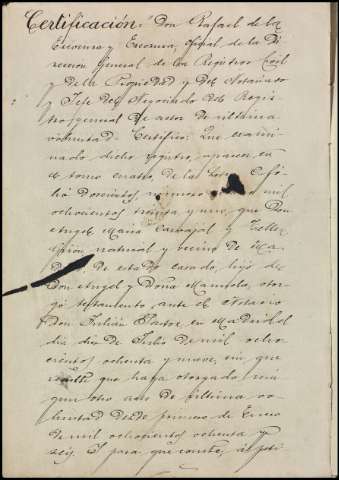 Certificación: Don Rafael de la
Escosura y Escosura, Oficial de la Di
rección general de los Registros Civil
y de la Propiedad y del Notariado
y Jefe del Negociado del Regis-
tro general de actos de última
voluntad. Certifico: Que exami-
nado dicho registro, aparece en
el tomo cuatro de la letra C, fó-
lio doscientos, número mil
ochocientos treinta y uno, que Don
Angel María Carvajal y Tellez
natural y vecino de Ma-
drid de estado casado, hijo de
Don Angel y Doña Manuela, otor-
gó testamento ante el Notario
Don Julián Pastor en Madrid el
día diez de Julio de mil ocho-
cientos ochenta y nueve, sin que
resulte que haya otorgado nin
gun otro acto de última vo-
luntad desde primero de Enero
de mil ochocientos ochenta y
seis. Y para que conste, á peti